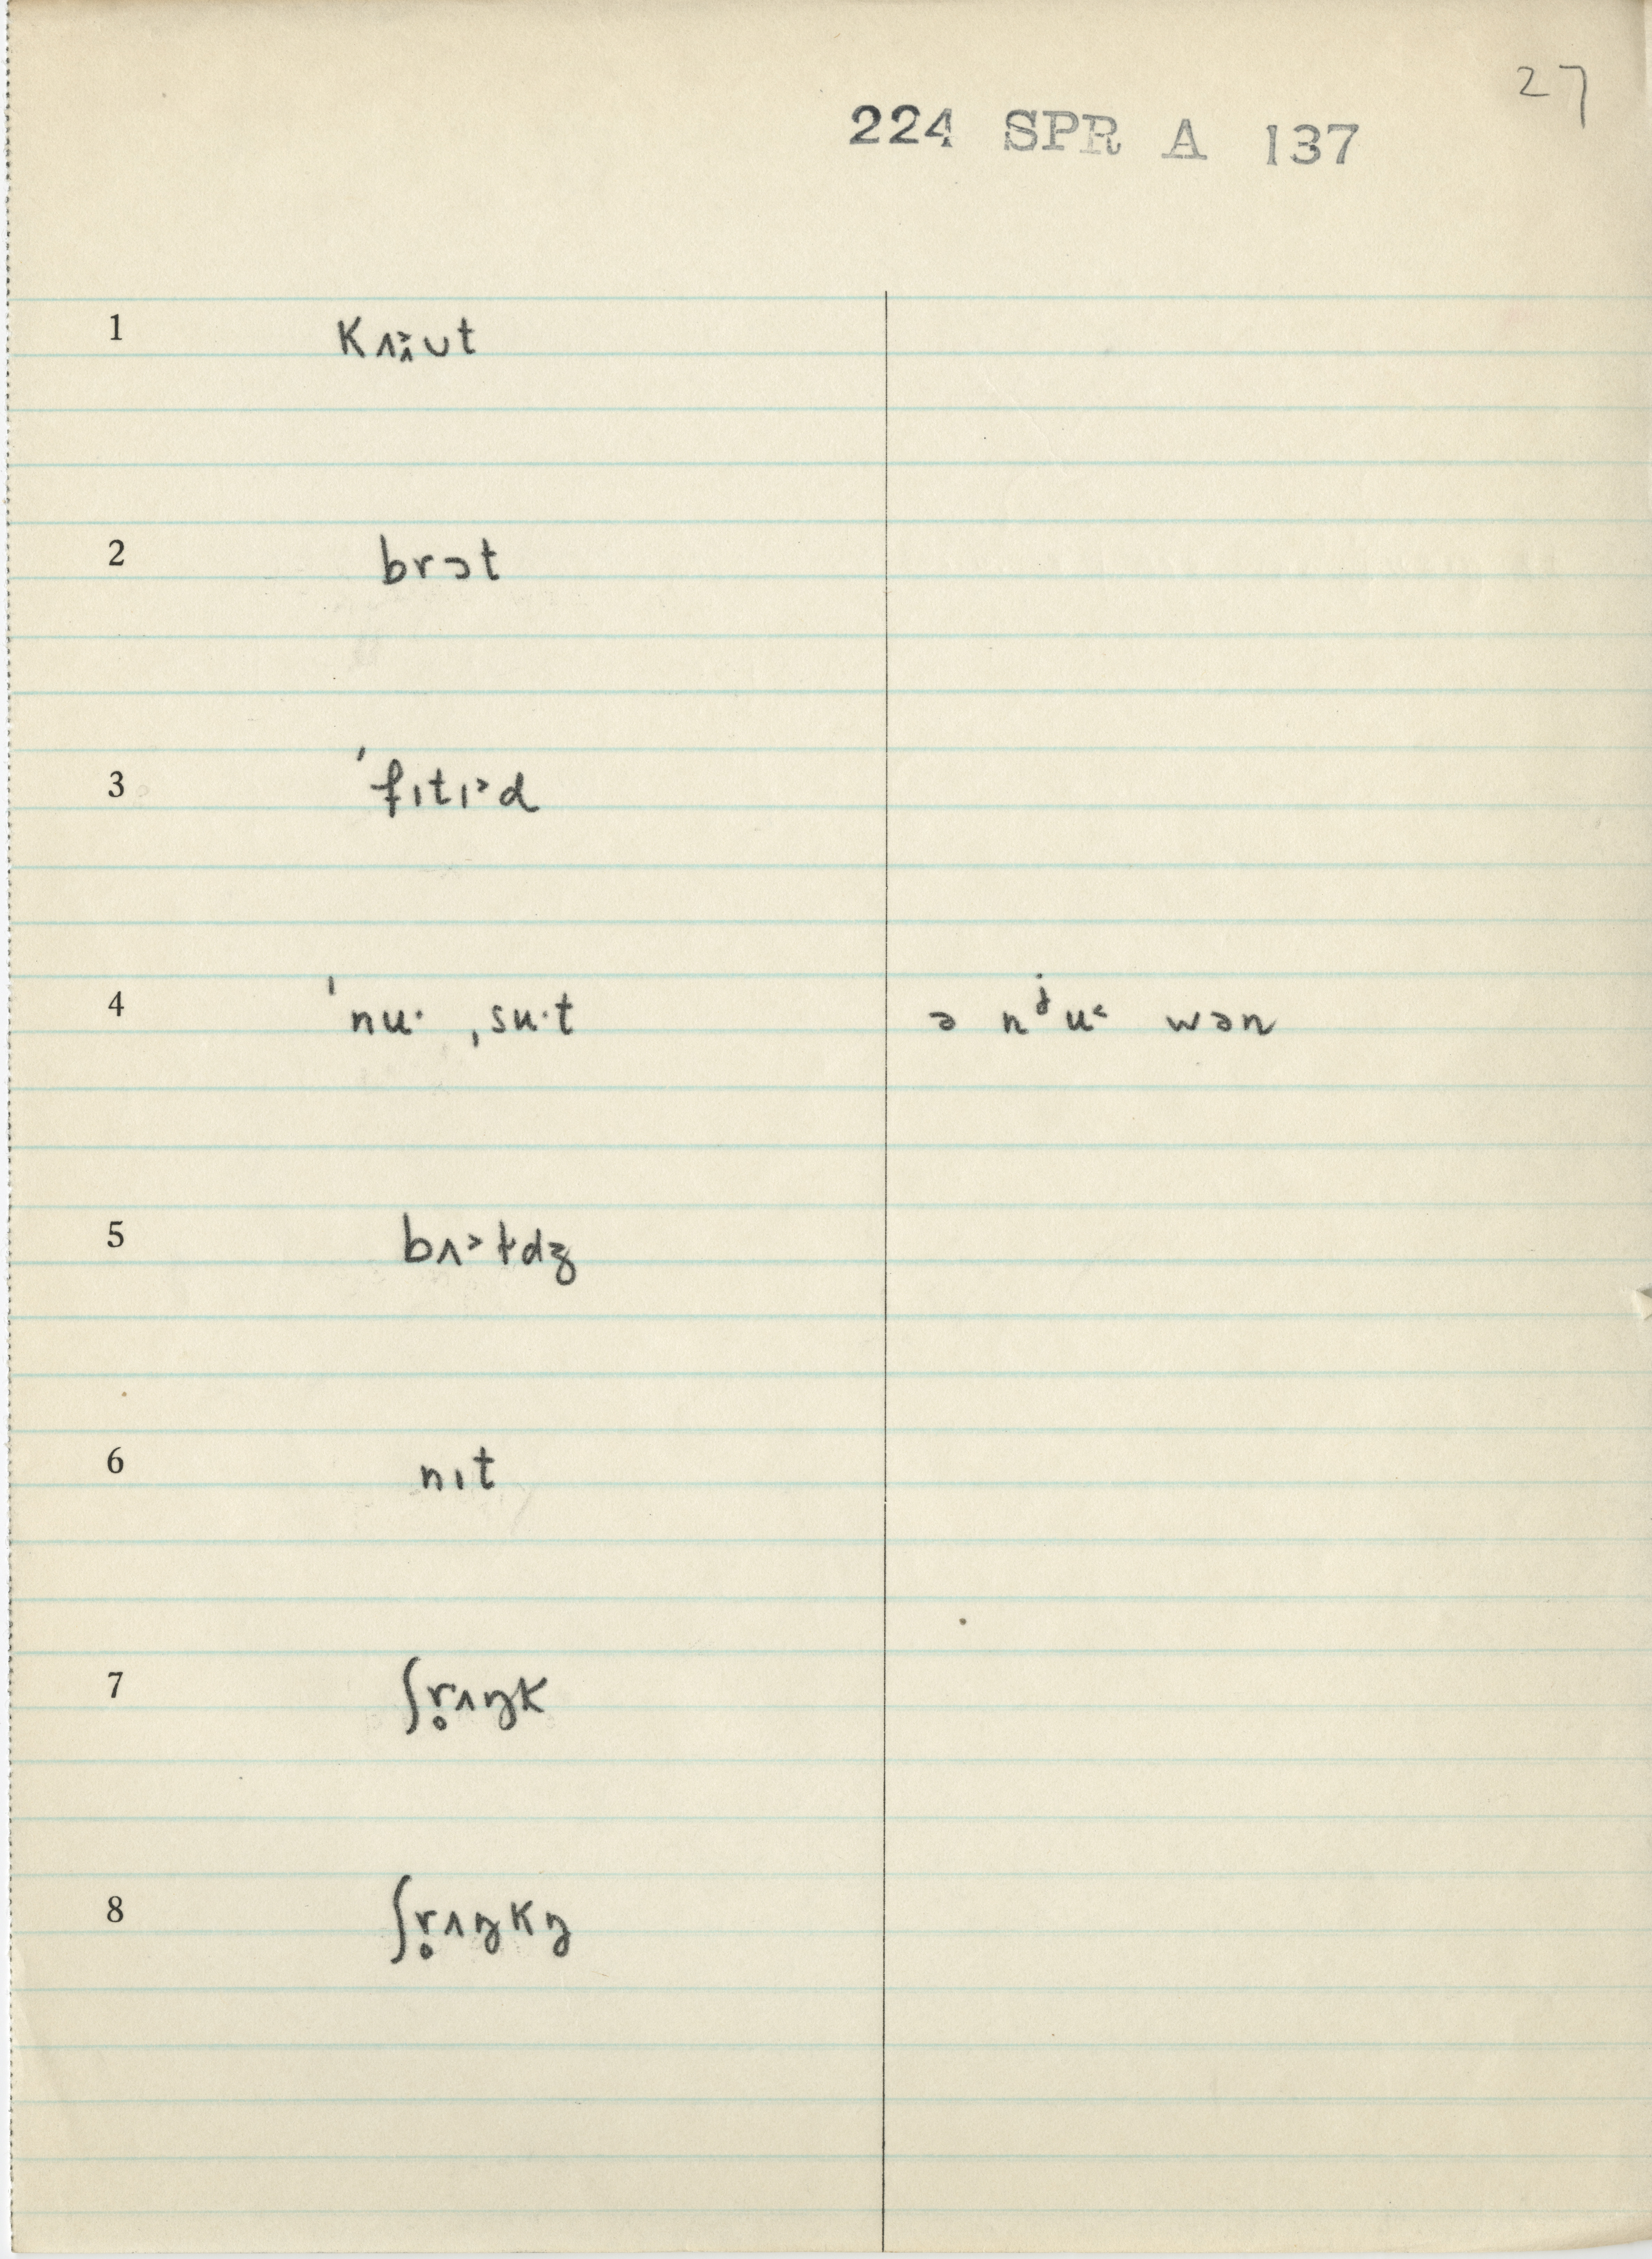 27
224 SPR A 137
1 kʌʌ̯˃ʊt
2 brɔt
3 ˈfɪtɪ˃d
4 ˈnuˑ ˌsuˑt ə nʲu˂ wən
5 bʌ˃ɫdʒ
6 nɪt
7 ʃr̥ʌŋk
8 ʃr̥ʌŋkŋ